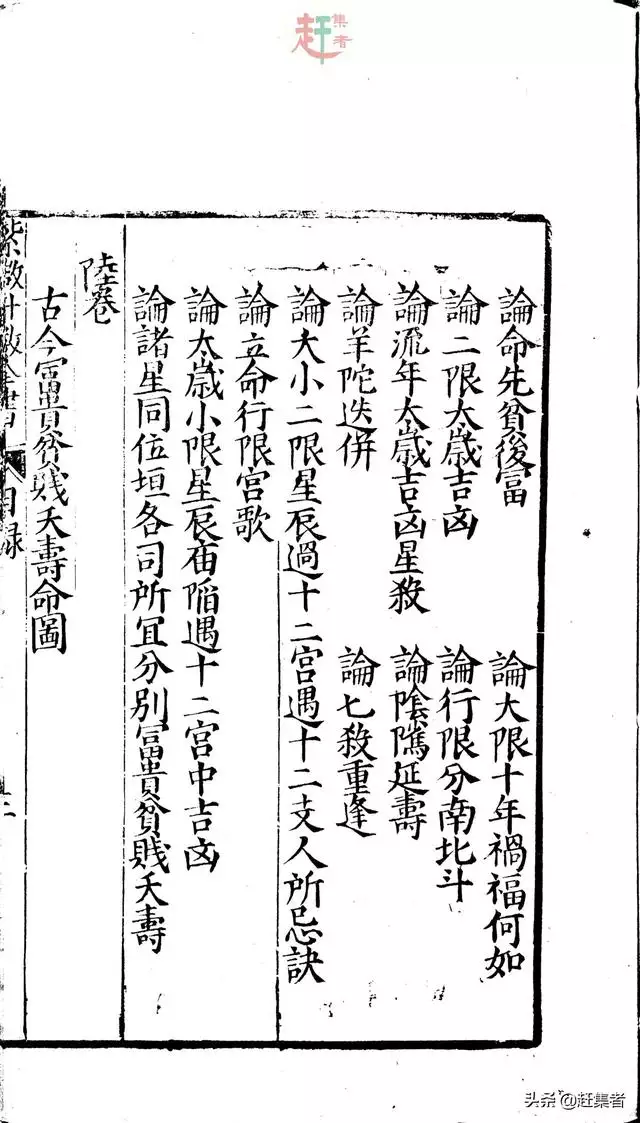 赶集者
論命先貧後富
論大限十年禍福何如
論二限太歲吉凶
論行限分南北斗
論流年太歲吉凶星殺
論陰騭延壽
論羊陀迭併
論七殺重逢
論大小二限星辰過十二宮遇十二支人所忌訣
論立命行限宮歌
論太歲小限星辰庙陷遇十二宮中吉凶
論諸星同位垣各司所宜分別富貴貧賤夭壽
陸卷
古今富貴貧賤夭壽命圖
紫微斗数全書
目録
二
头条@赶集者